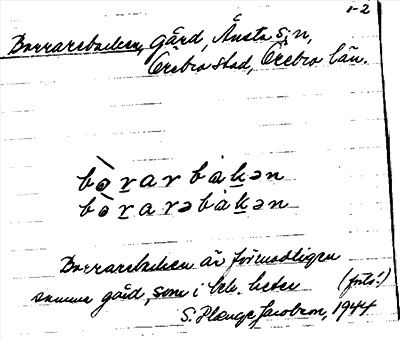 1-2
Borrarebacken, gård, Ånsta s:n,
Örebro stad, Örebro län.
bòrarbákən
bòrarəbákən
Borrarebacken är förmodligen
samma gård, som i heter (forts.)
S. Plenge Jacobson, 1944